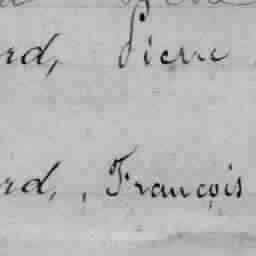 rd, Pierre
rd, , François